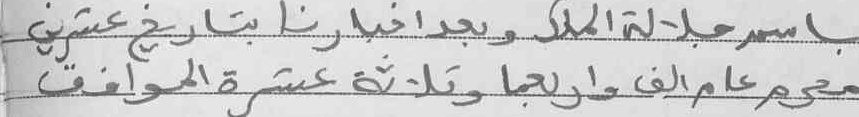 باسم جلالة الملك وبعد اخبارنا بتاريخ عشرين
محرم عام الف واربعما وثلاثة عشرة الموافق